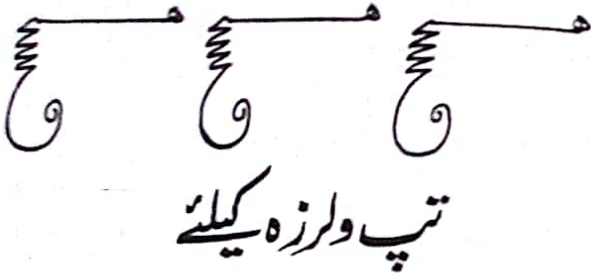 تپ ولرزہ کیلئے